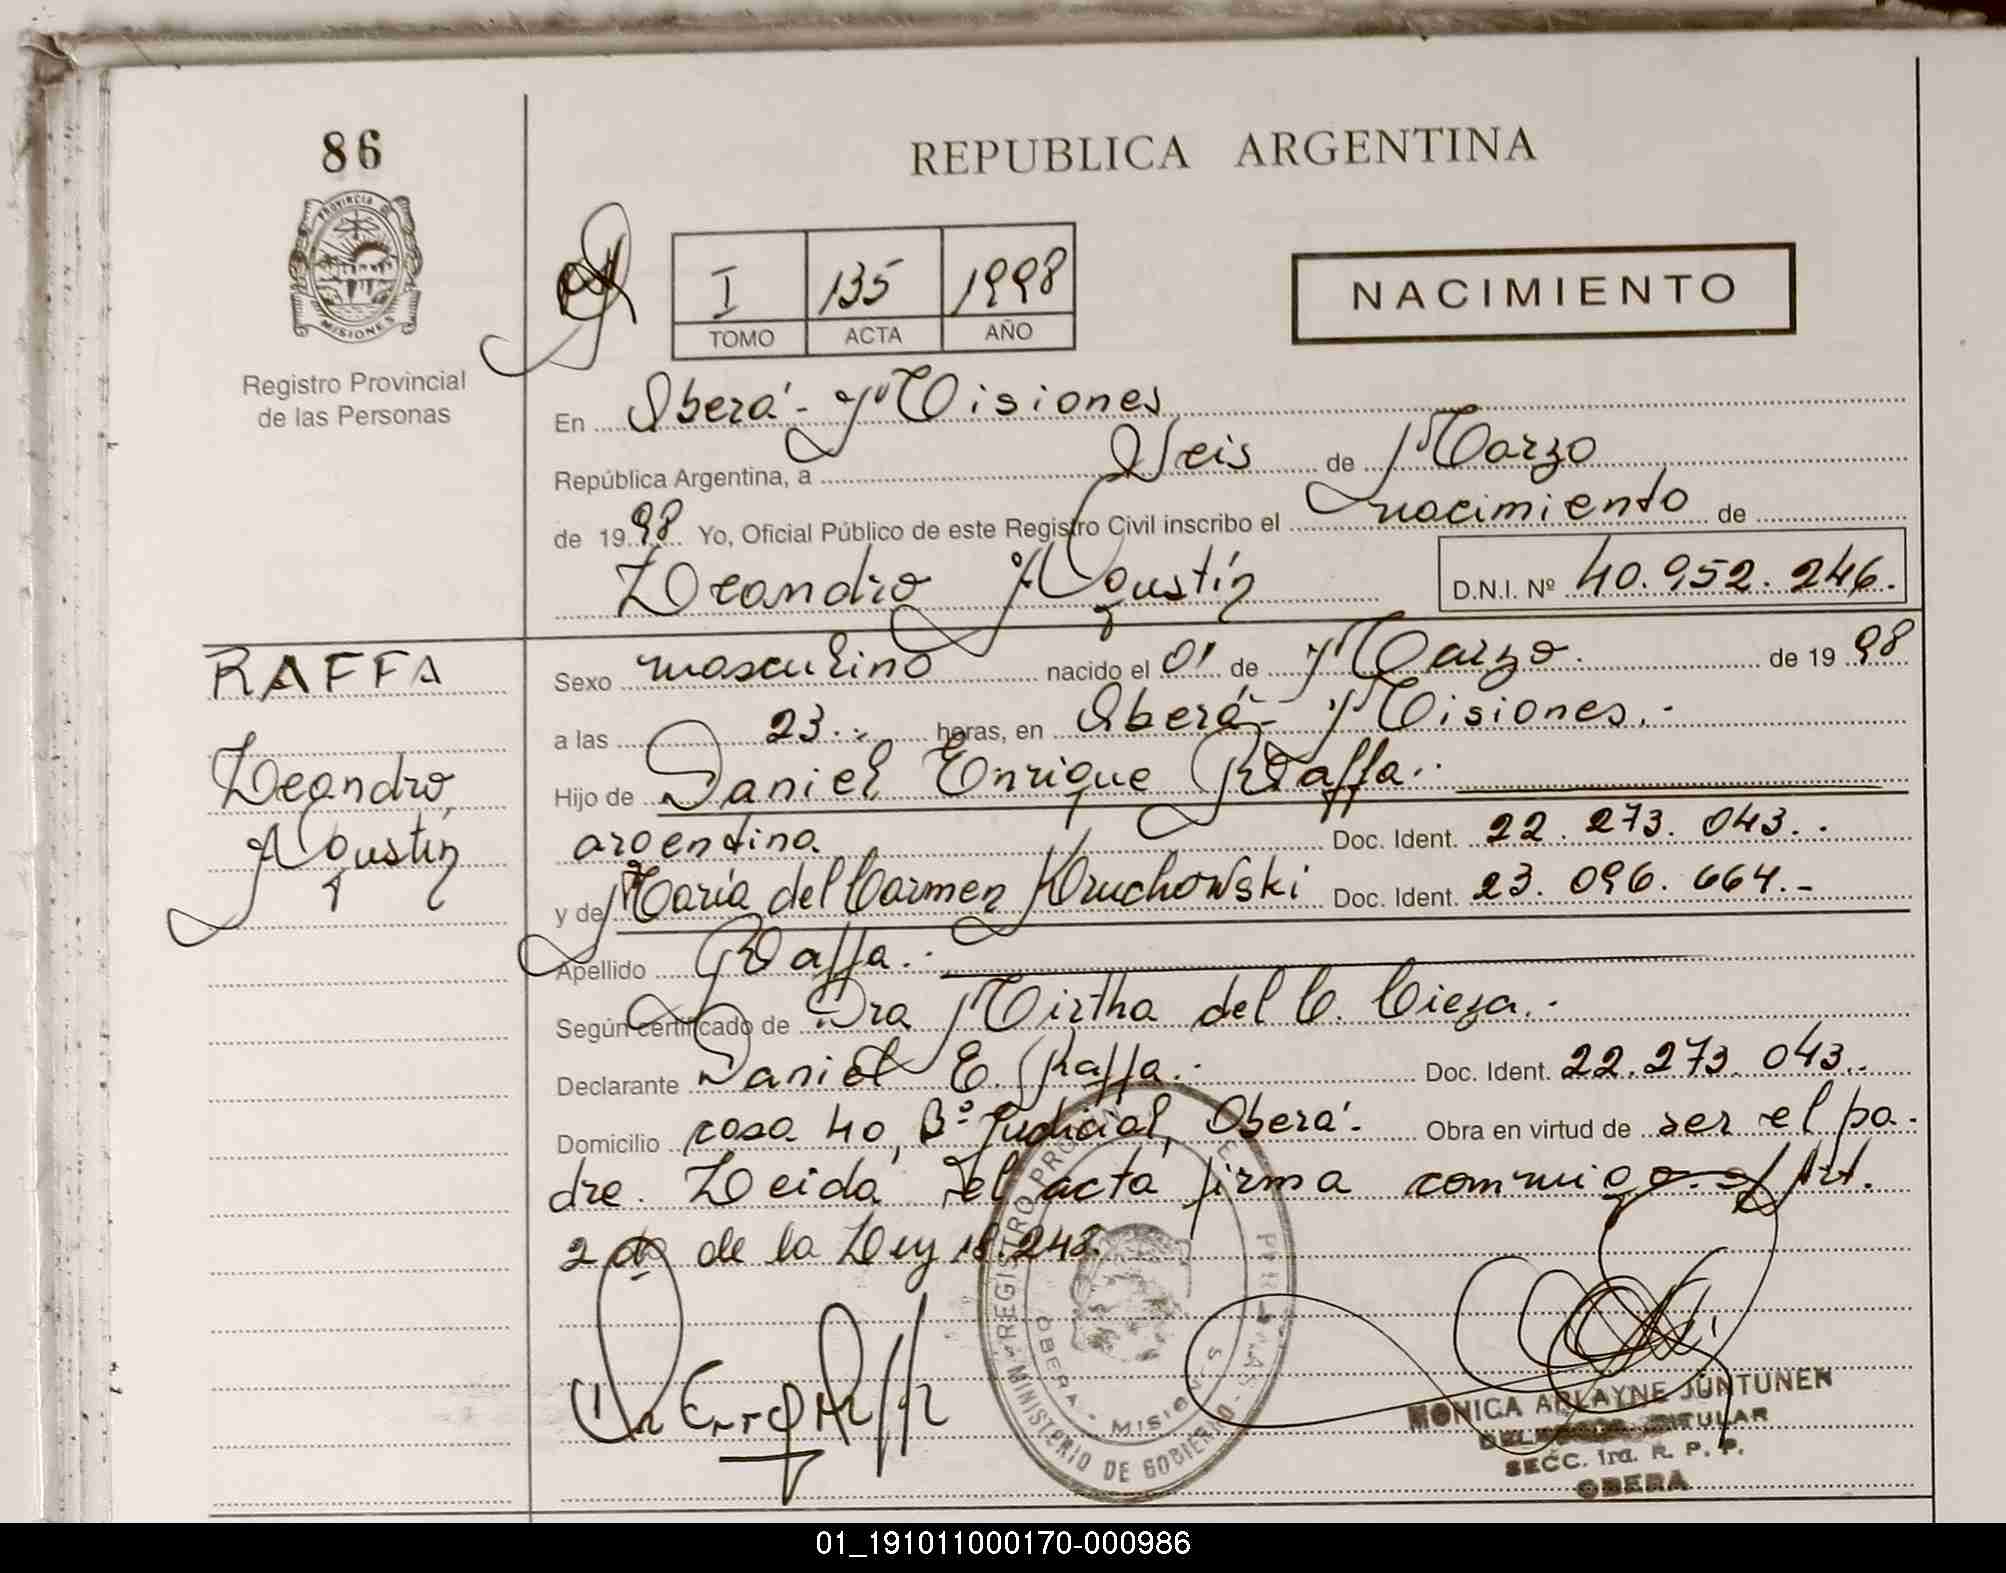 86
REPUBLICA ARGENTINA
PROVINCIA DE
MISIONES
Registro Provincial
de las Personas
I 135 1998
TOMO ACTA AÑO
NACIMIENTO
En Oberá - Misiones
República Argentina, a Seis de Marzo
de 1998 Yo, Oficial Público de este Registro Civil inscribo el nacimiento de
Leandro Agustín D.N.I. Nº 40.952.246.
RAFFA
Leandro
Agustín
Sexo masculino nacido el 01 de Marzo. de 1998
a las 23.. horas, en Oberá - Misiones.-
Hijo de Daniel Enrique Raffa..
argentina Doc. Ident. 22.273.043..
y de María del Carmen Kruchowski Doc. Ident. 23.096.664.-
Apellido Raffa..
Según certificado de Dra Mirtha del C. Cieza.-
Declarante Daniel E. Raffa.- Doc. Ident. 22.273.043..
Domicilio casa 40, Bº Judicial, Oberá. Obra en virtud de ser el pa-
dre. Leida el acta firma conmigo. Art.
2do de la Ley 18.248.
REGISTRO PROV
MINISTERIO DE GOBIERNO
OBERA - MISIONES
MONICA ARLAYNE JUNTUNEN
TITULAR
SECC. 1ra. R. P. P.
OBERA
01_191011000170-000986